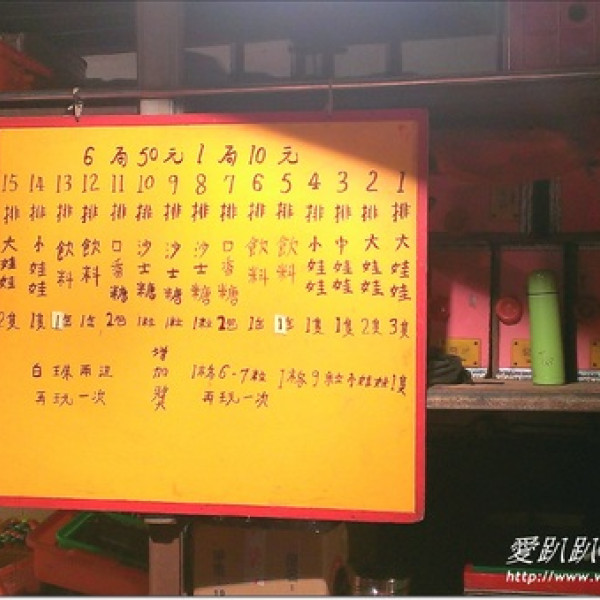 6局50元1局10元
15 14 13 12 11 10 9 8 7 6 5 4 3 2 1
排 排 排 排 排 排 排 排 排 排 排 排 排 排 排
大娃娃 小娃娃 飲料 飲料 口香糖 沙士糖 沙士糖 沙士糖 口香糖 飲料 飲料 小娃娃 中娃娃 大娃娃 大娃娃
2隻 1隻 1缶 1缶 2包 1粒 1粒 1粒 2包 1缶 1缶 1隻 1隻 2隻 3隻
白珠兩
再玩一次
增加獎
6-7粒
再玩一次
9粒小娃娃1隻
愛趴趴
http://www.